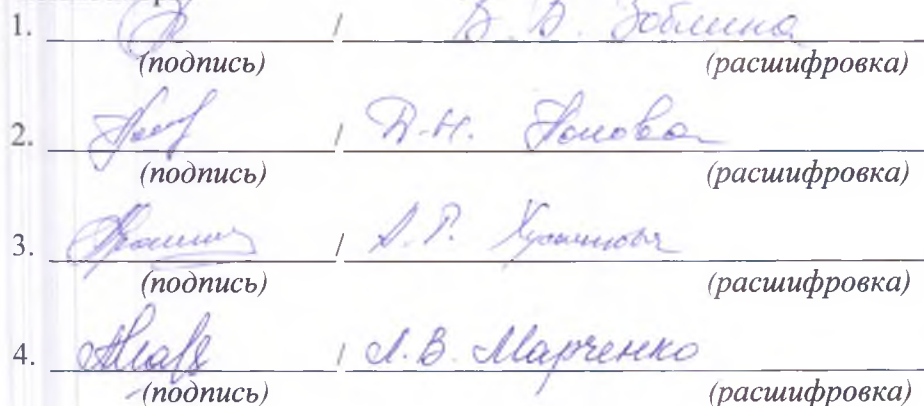 1. / В. В. Зоблина
(подпись) (расшифровка)
2. / Д.Н. Попова
(подпись) (расшифровка)
3. / А. Р.
(подпись) (расшифровка)
4. / Л. В. Марченко
(подпись) (расшифровка)